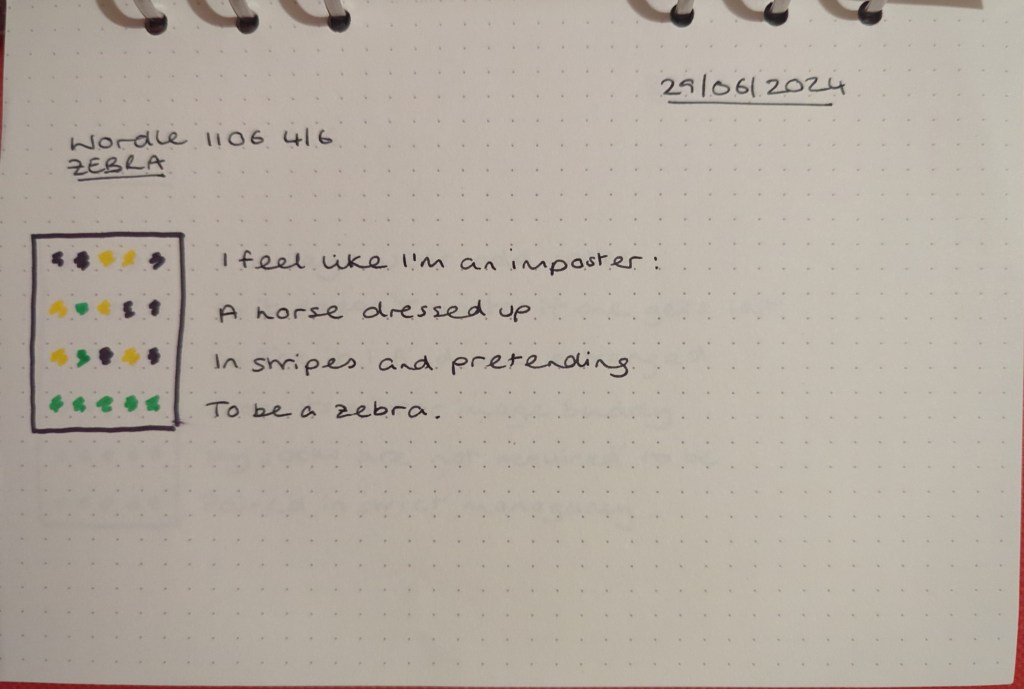 29/06/2024
Wordle 1106 4/6
ZEBRA
I feel like I'm an imposter:
A horse dressed up
In stripes and pretending
To be a zebra.